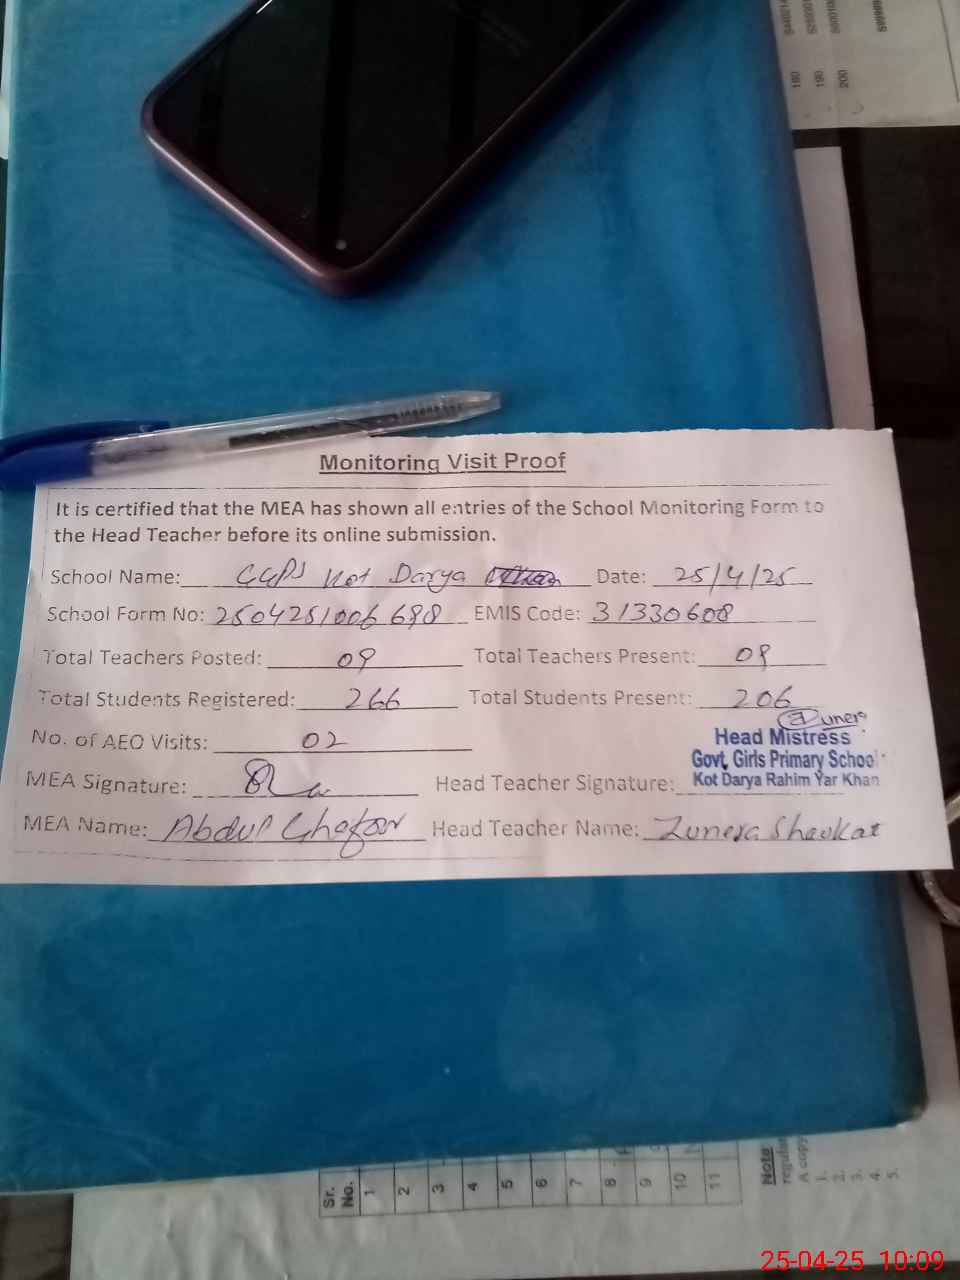 Monitoring Visit Proof
It is certified that the MEA has shown all entries of the School Monitoring Form to
the Head Teacher before its online submission.
School Name: GGPS Kot Darya Date: 25/4/25
School Form No: 2504251006688 EMIS Code: 31330608
Total Teachers Posted: 09 Total Teachers Present: 08
Total Students Registered: 266 Total Students Present: 206
No. of AEO Visits: 02
Zunera
Head Mistress
Govt. Girls Primary School
Kot Darya Rahim Yar Khan
MEA Signature: Head Teacher Signature:
MEA Name: Abdul Ghafoor Head Teacher Name: Zunera Shaukat
180
190
200
Sr. No. 1 2 3 4 5 6 7 8 9 10 11
Note
A copy
1.
2.
3.
4.
5.
25-04-25 10:09